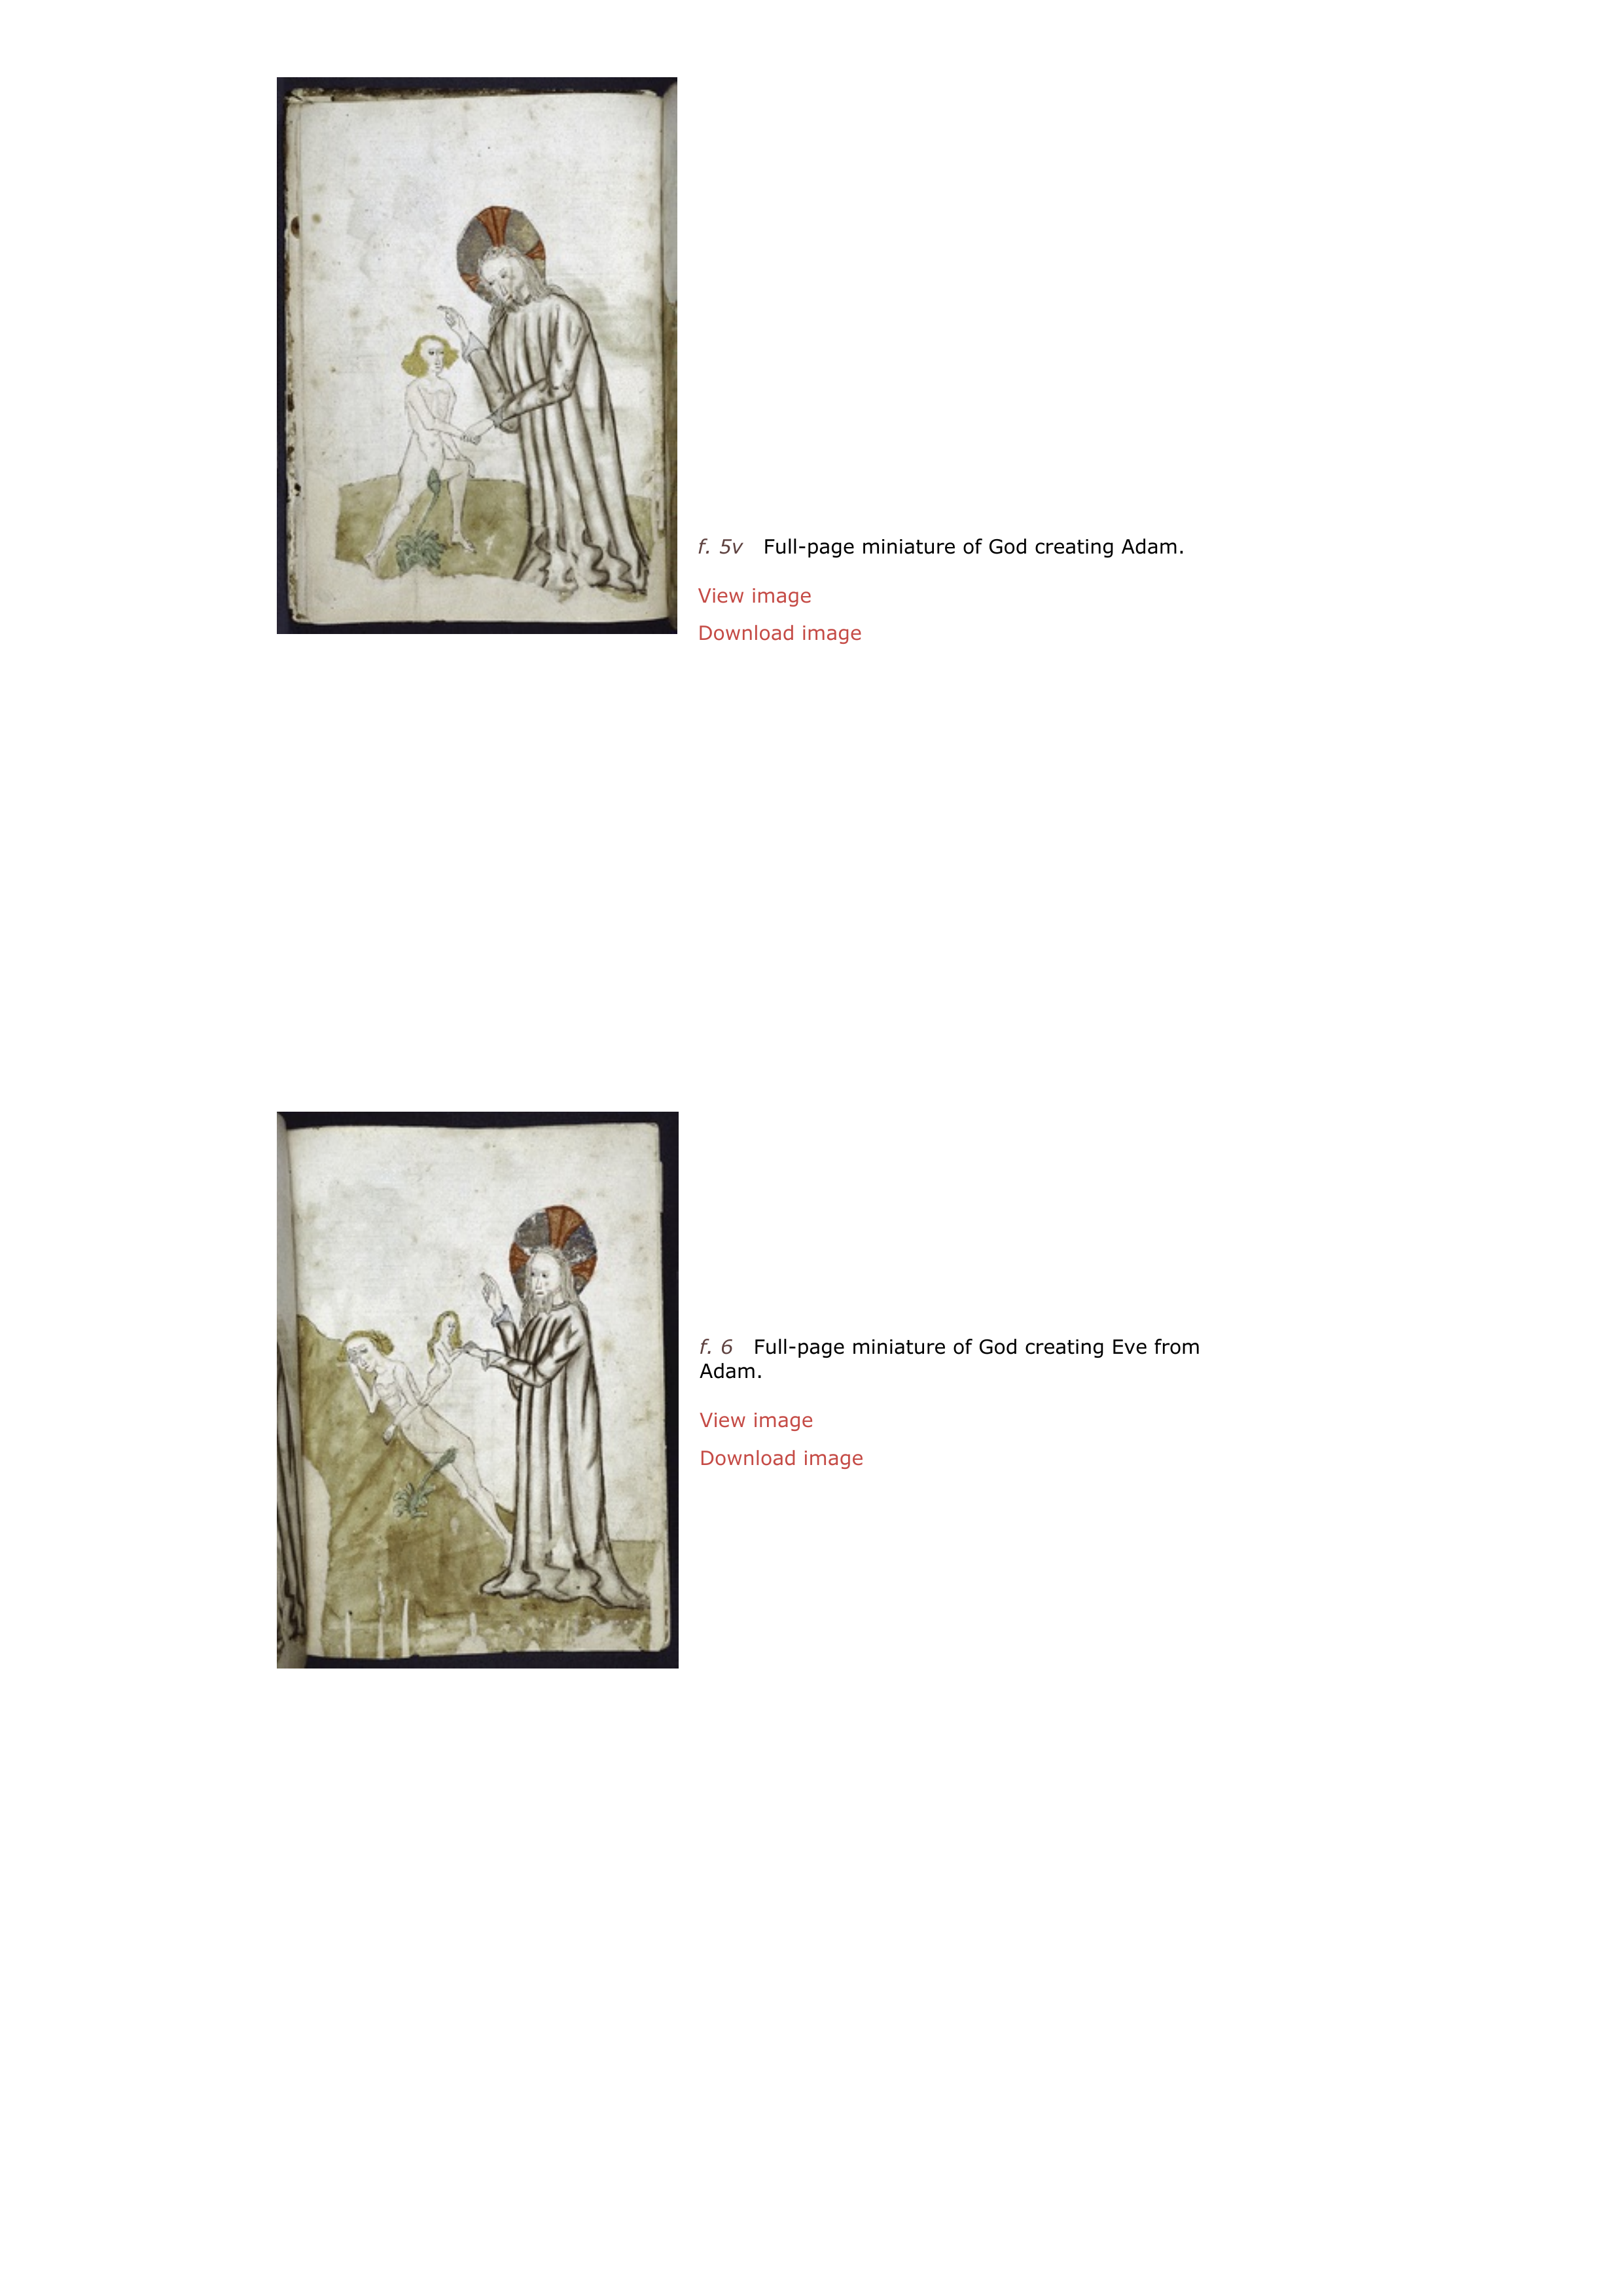 f. 5v Full-page miniature of God creating Adam.
View image
Download image
f. 6 Full-page miniature of God creating Eve from
Adam.
View image
Download image